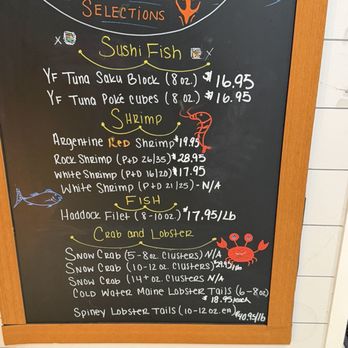 SELECTIONS
Sushi Fish
YF Tuna Saku Block (8 oz.) $16.95
YF Tuna Poké cubes (8 oz.) $16.95
Shrimp
Argentine Red Shrimp $19.95
Rock Shrimp (P+D 26/35) $28.95
White Shrimp (P+D 16/20) $17.95
White Shrimp (P+D 21/25) - N/A
FISH
Haddock Filet (8-10 oz.) $17.95/lb
Crab and Lobster
Snow Crab (5-8oz clusters) N/A
Snow Crab (10-12 oz. Clusters)
Snow Crab (14+ oz. Clusters) N/A
Cold Water Maine Lobster Tails (6-8oz)
$18.95/each
Spiney Lobster Tails (10-12 oz. ea) $40.95/lb